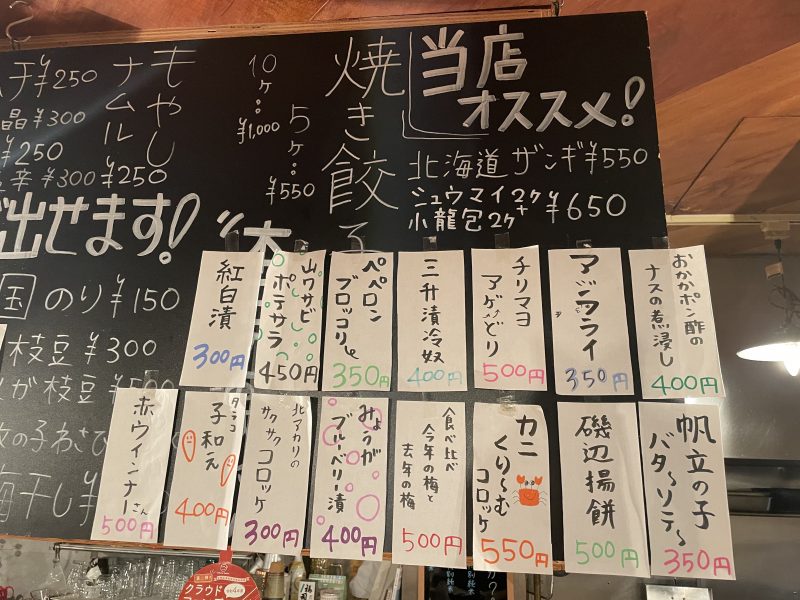 当店
オススメ!
北海道ザンギ¥550
シュウマイ2ケ+
小龍包2ケ
¥650
焼き餃子
5ケ:
¥550
10ケ:
¥1,000
もやし
ナムル
¥250
¥250
晶¥300
¥250
辛¥300
出せます!
国のり¥150
枝豆¥300
が枝豆
の子わさび
梅干し¥
おかかポン酢の
ナスの煮浸し
400円
アジフライ
350円
チリマヨ
アゲどり
500円
三升漬冷奴
400円
ペペロン
ブロッコリー
350円
山ワサビ
ポテサラ
450円
紅白漬
300円
帆立の子
バタ〜ソテ〜
350円
磯辺揚餅
500円
カニ
くり〜む
コロッケ
550円
食べ比べ
今年の梅と
去年の梅
500円
みょうが
ブルーベリー漬
400円
北アカリの
サクサクコロッケ
300円
タラコ
子和え
400円
赤ウインナーさん
500円
クラウド